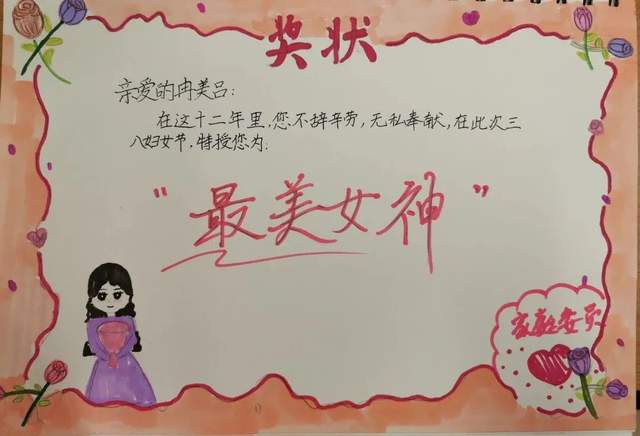 奖状
亲爱的冉美吕:
在这十二年里,您不辞辛劳,无私奉献,在此次三
八妇女节,特授您为:
“最美女神”
家庭委员